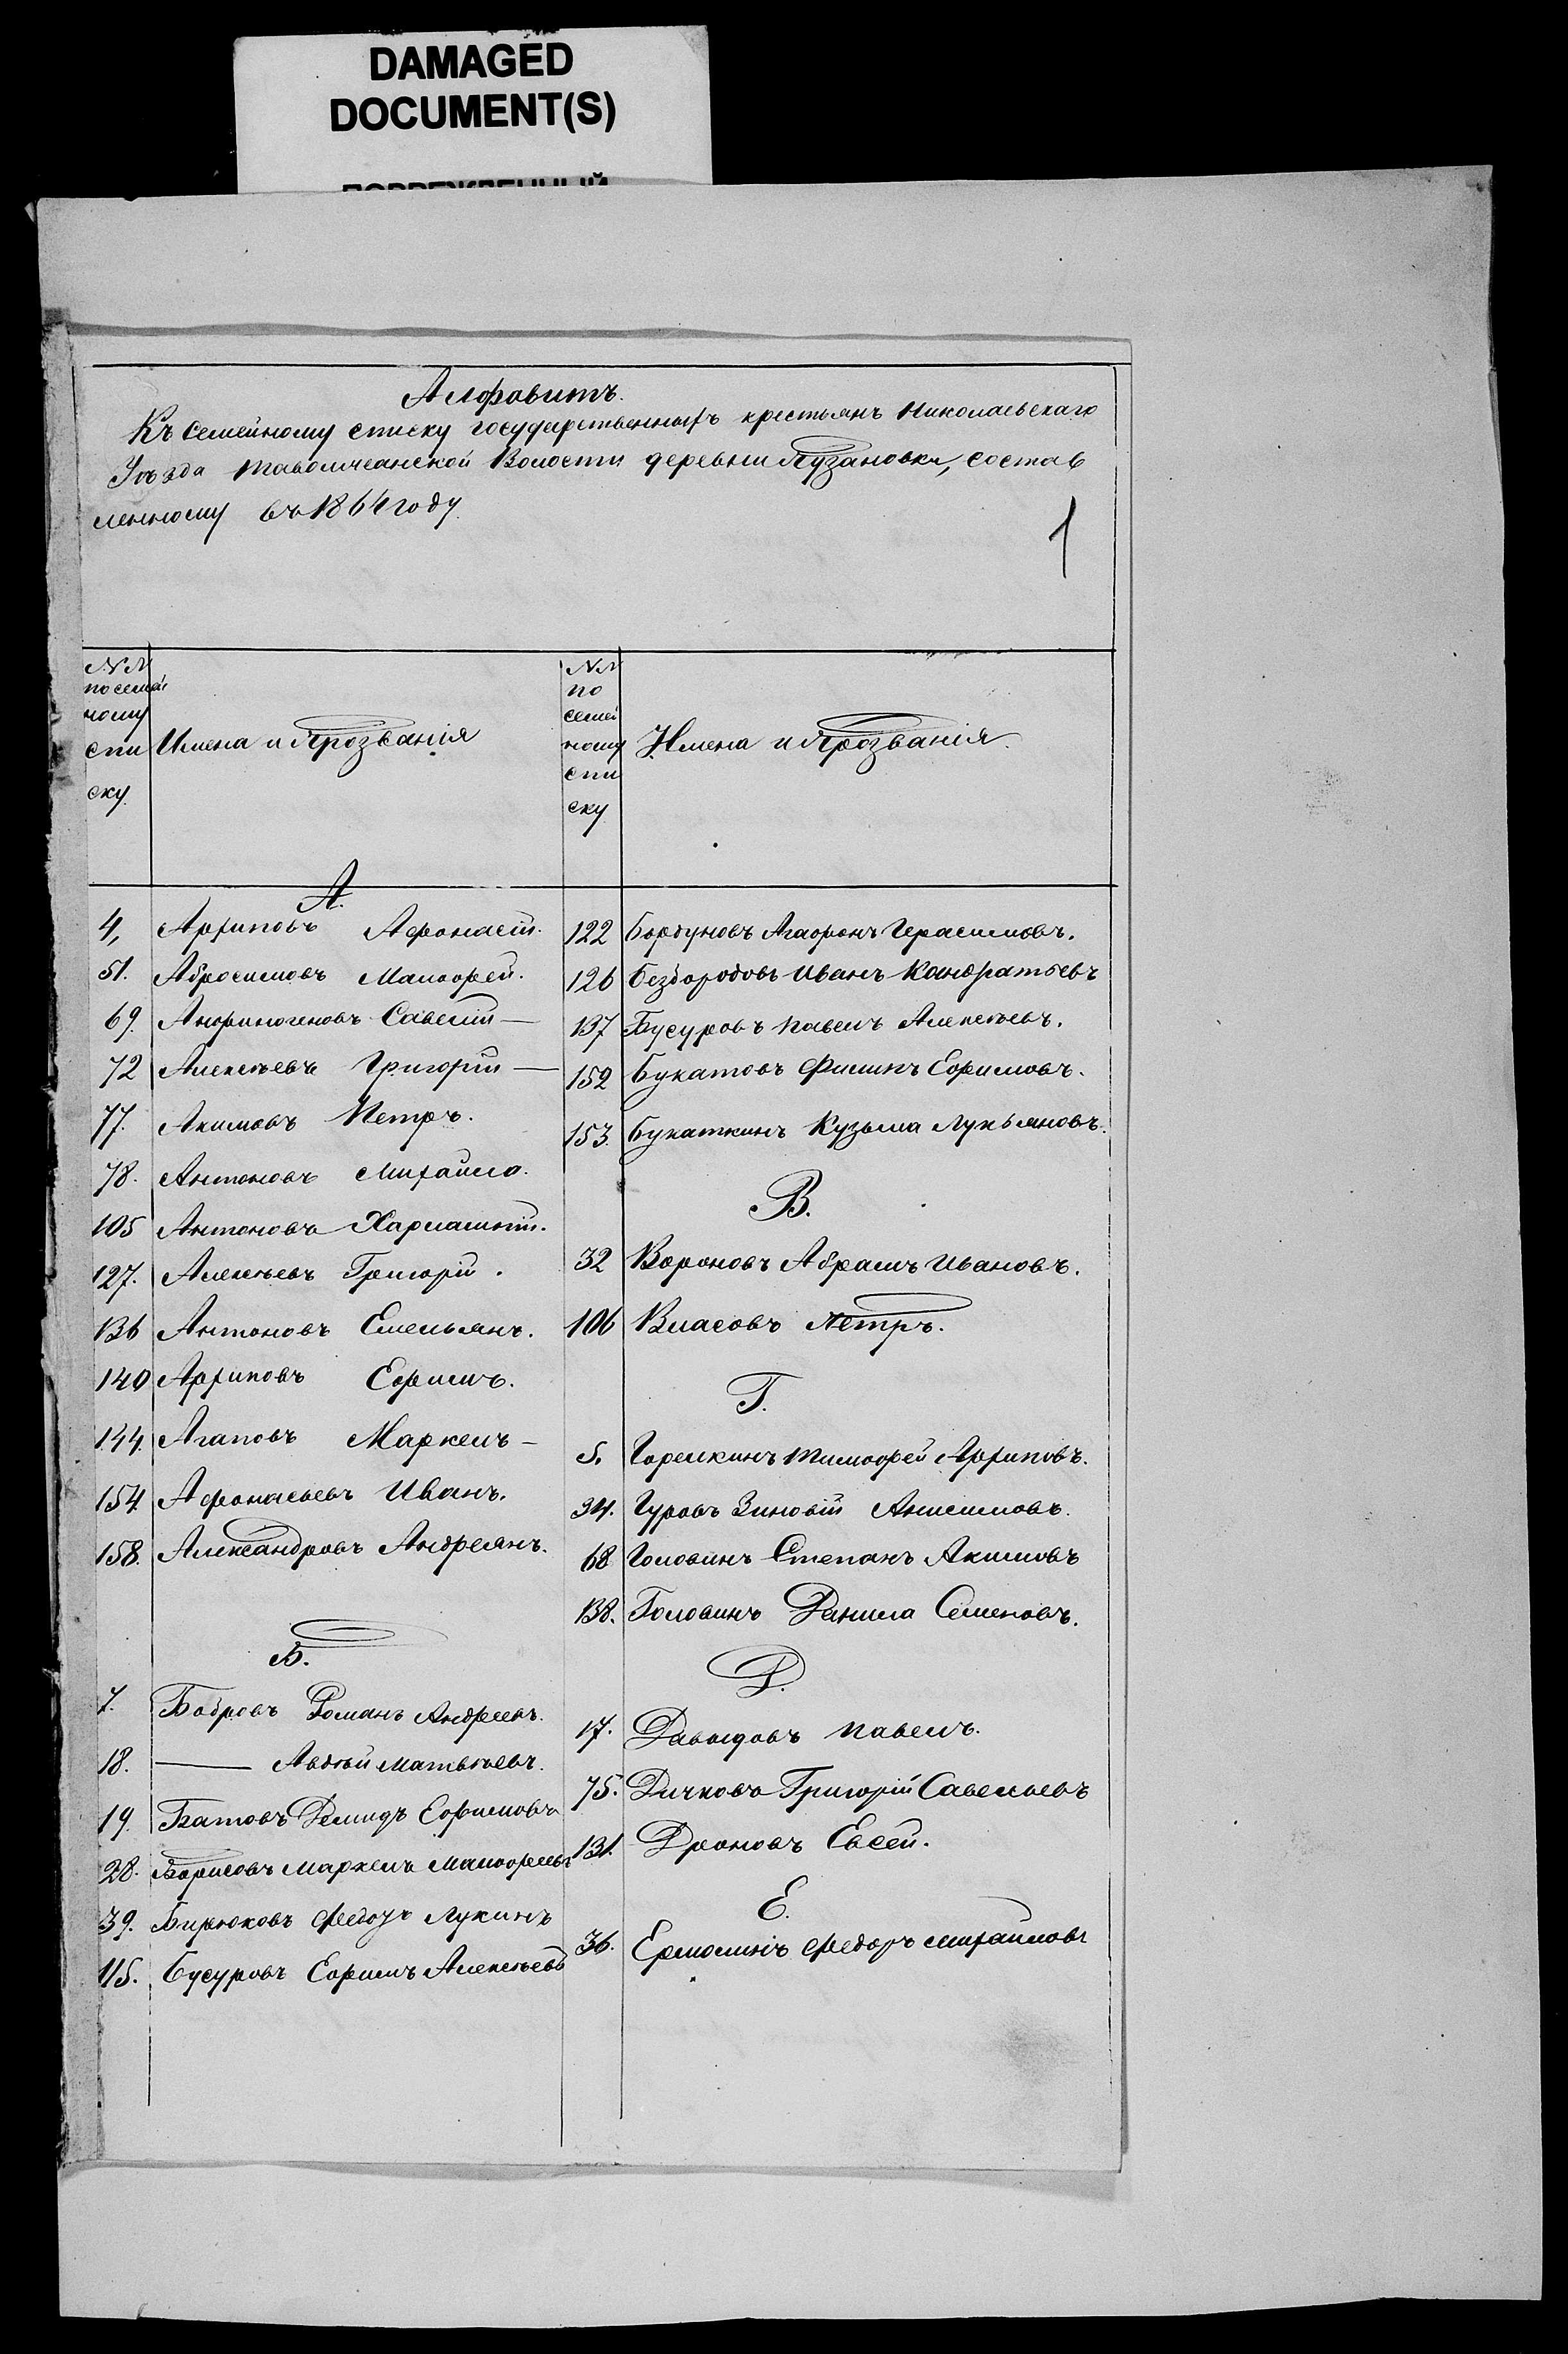 DAMAGED
DOCUMENT(S)
ПОВРЕЖДЕННЫЙ
Алфавитъ.
Къ семейному списку государственныхъ крестьянъ Николаевскаго
Уѣзда Таволжанской Волости деревни Пузановки, состав
ленному въ 1864 году
1
№№
по семей
ному
спи
ску
Имена и Прозванія
А.
4, Архиповъ Афонасій.
51. Абросимовъ Малофей.
69. Анфиногеновъ Савелій —
72 Алексѣевъ Григорій —
77. Акимовъ Петръ.
78. Антоновъ Михайло.
105 Антоновъ Харлампій.
127. Алексѣевъ Григорій.
136 Антоновъ Емельянъ.
140 Архиповъ Ефимъ.
144. Агаповъ Маркелъ —
154 Афонасьевъ Иванъ.
158. Александровъ Андреянъ.
Б.
7. Бобровъ Романъ Андреевъ.
18. —— Авдѣй Матвѣевъ.
19. Батовъ Демидъ Ефимовъ
28. Борисовъ Маркелъ Малофеевъ
39. Бирюковъ Федоръ Лукинъ
115. Бусуровъ Ефимъ Алексѣевъ
№№
по
семей
ному
спи
ску
Имена и Прозванія.
122 Бордуновъ Агафонъ Герасимовъ.
126 Безбородовъ Иванъ Кандратьевъ
137 Бусуровъ Павелъ Алексѣевъ.
152 Букатовъ Филипъ Ефимовъ.
153. Букаткинъ Кузьма Лукьяновъ.
В.
32 Вороновъ Абрамъ Ивановъ.
106 Власовъ Петръ.
Г.
5. Горелкинъ Тимофей Архиповъ.
34. Гуровъ Зиновій Анисимовъ.
68 Головинъ Степанъ Акимовъ
138. Головинъ Данила Семеновъ.
Д.
17. Давыдовъ Павелъ.
75. Дичковъ Григорій Савельевъ
131. Дроновъ Евсей.
Е.
36. Ермолинъ Федоръ Михайловъ